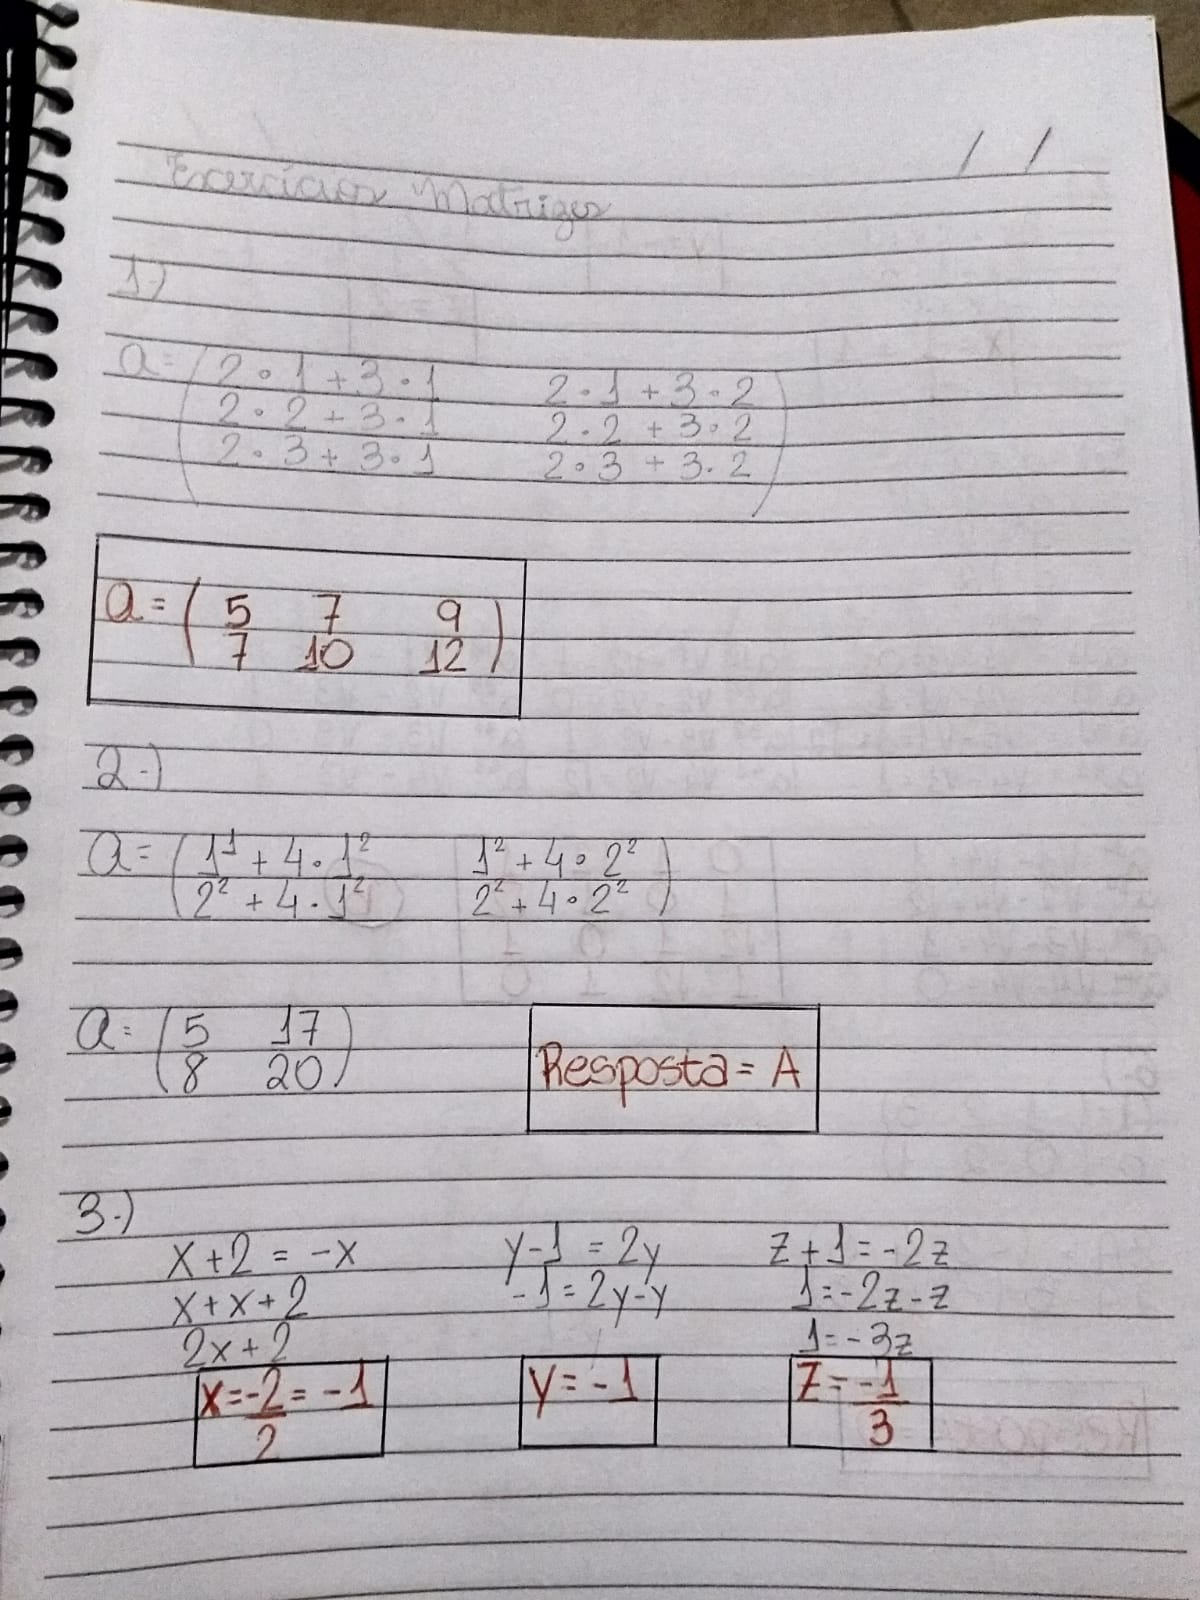 / /
Exercícios Matrizes
1-)
a = ( 2·1+3·1 2·1+3·2
2·2+3·1 2·2+3·2
2·3+3·1 2·3+3·2 )
a = ( 5 7 9
7 10 12 )
2-)
a = ( 1¹+4·1² 1²+4·2²
2²+4·1² 2²+4·2² )
a = ( 5 17
8 20 )
Resposta = A
3-)
x+2 = -x y-1 = 2y z+1 = -2z
x+x+2 -1 = 2y-y 1 = -2z-z
2x+2 1 = -3z
x = -2/2 = -1 y = -1 z = -1/3